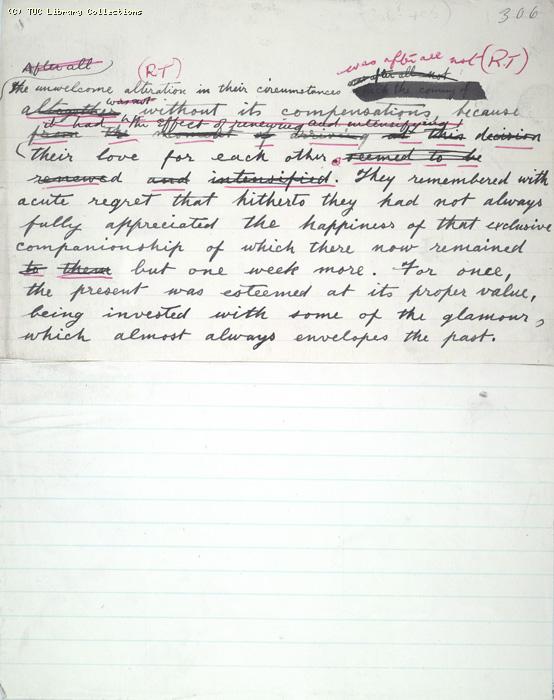 (C) TUC Library Collections
306
After all
(RT)
was after all not (RT)
was after all not
the unwelcome alteration in their circumstances
such the coming of
was not
altogether without its compensations, because
it had the effect of renewing and intensifying
from the moment of arriving at this decision
their love for each other. seemed to be
renewed and intensified. They remembered with
acute regret that hitherto they had not always
fully appreciated the happiness of that exclusive
companionship of which there now remained
to them but one week more. For once,
the present was esteemed at its proper value,
being invested with some of the glamour,
which almost always envelopes the past.